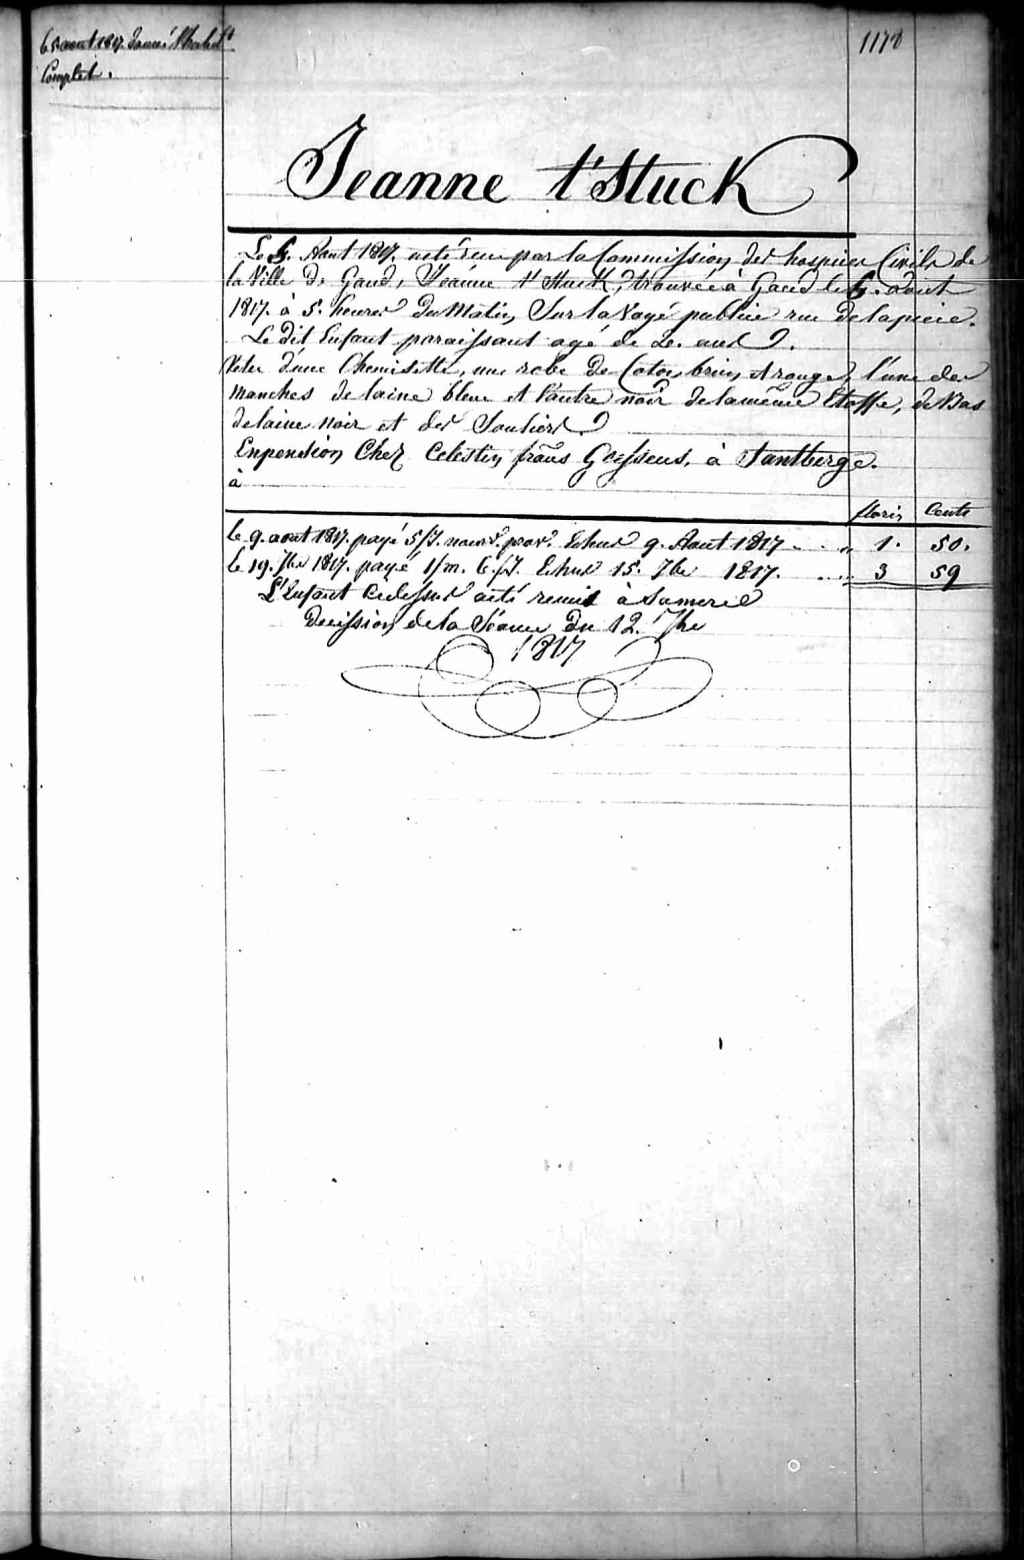 le 5 aout 1817. donné l'habill.t
Complet.
1178
Jeanne t'Stuck
Le 5. Aout 1817. a eté reçu par la Commission des hospices Civils de
la Ville de Gand, Jéanne t'Stuck, trouvée à Gand le 5. aout
1817. à 5. heures du Matin, Sur la Voye publicé rue
Le dit Enfant paraissant agé de 2. ans.
Vetu d'une Chemisette, une robe de Coton brun et rouge, l'une des
manches de laine bleue et l'autre noir de la même Etoffe, de Bas
de laine noir et des Souliers.
En pension Chez Celestin frans Goessens, à Santberge.
à
florin Cents
le 9. aout 1817. payé 5/J. Echus 9. Aout 1817 " 1. 50.
le 19. 7bre 1817. payé 1/m. 6./J. Echus 15. 7bre 1817. 3 59
L'Enfant Cidessus a eté remis à Sa mere
Decission de la Séance du 12. 7bre
1817